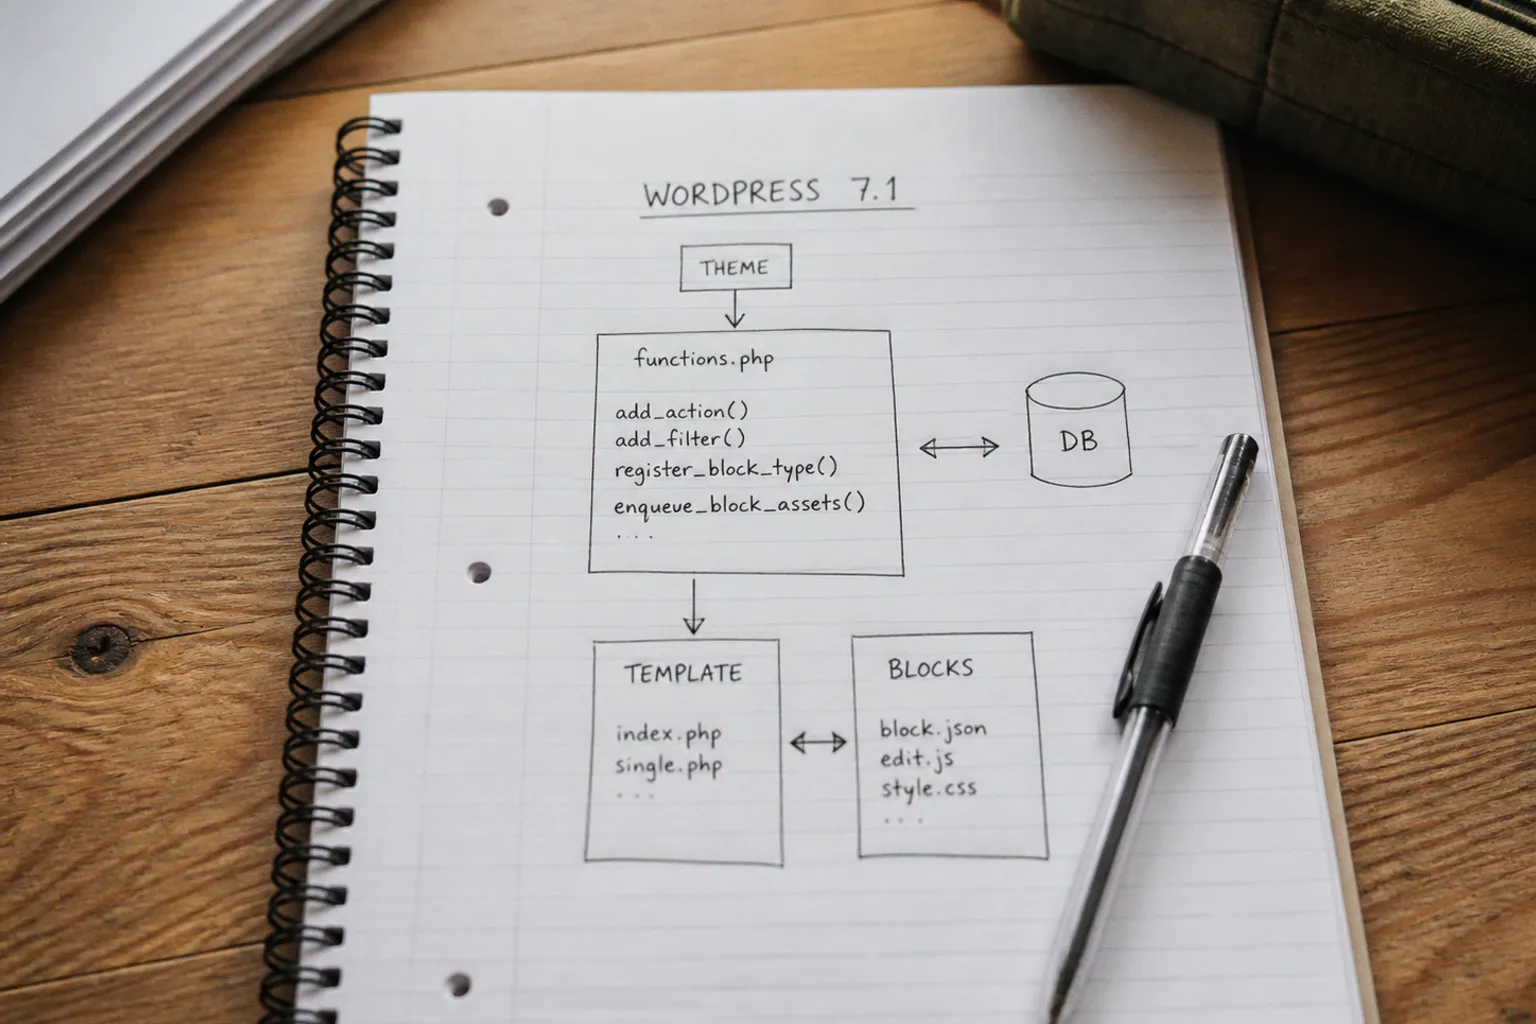 WORDPRESS 7.1
THEME
functions.php
add_action()
add_filter()
register_block_type()
enqueue_block_assets()
....
DB
TEMPLATE
index.php
single.php
...
BLOCKS
block.json
edit.js
style.css
...